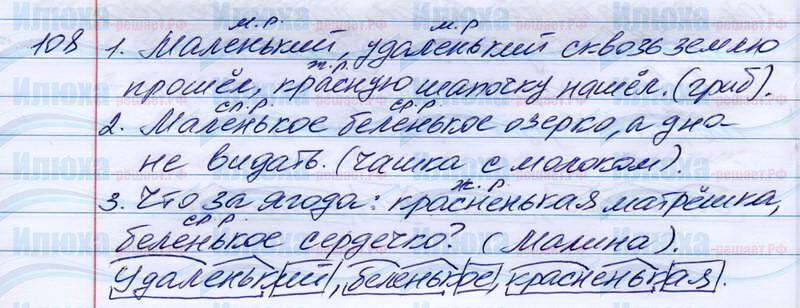 м.р. м.р.
108 1. Маленький, удаленький сквозь землю
ж.р.
прошёл, красную шапочку нашёл. (гриб).
ср.р. ср.р.
2. Маленькое беленькое озерко, а дна-
не видать. (чашка с молоком).
ж.р.
3. Что за ягода: красненькая матрёшка,
ср.р.
беленькое сердечко? (Малина).
Удаленький, беленькое, красненькая.